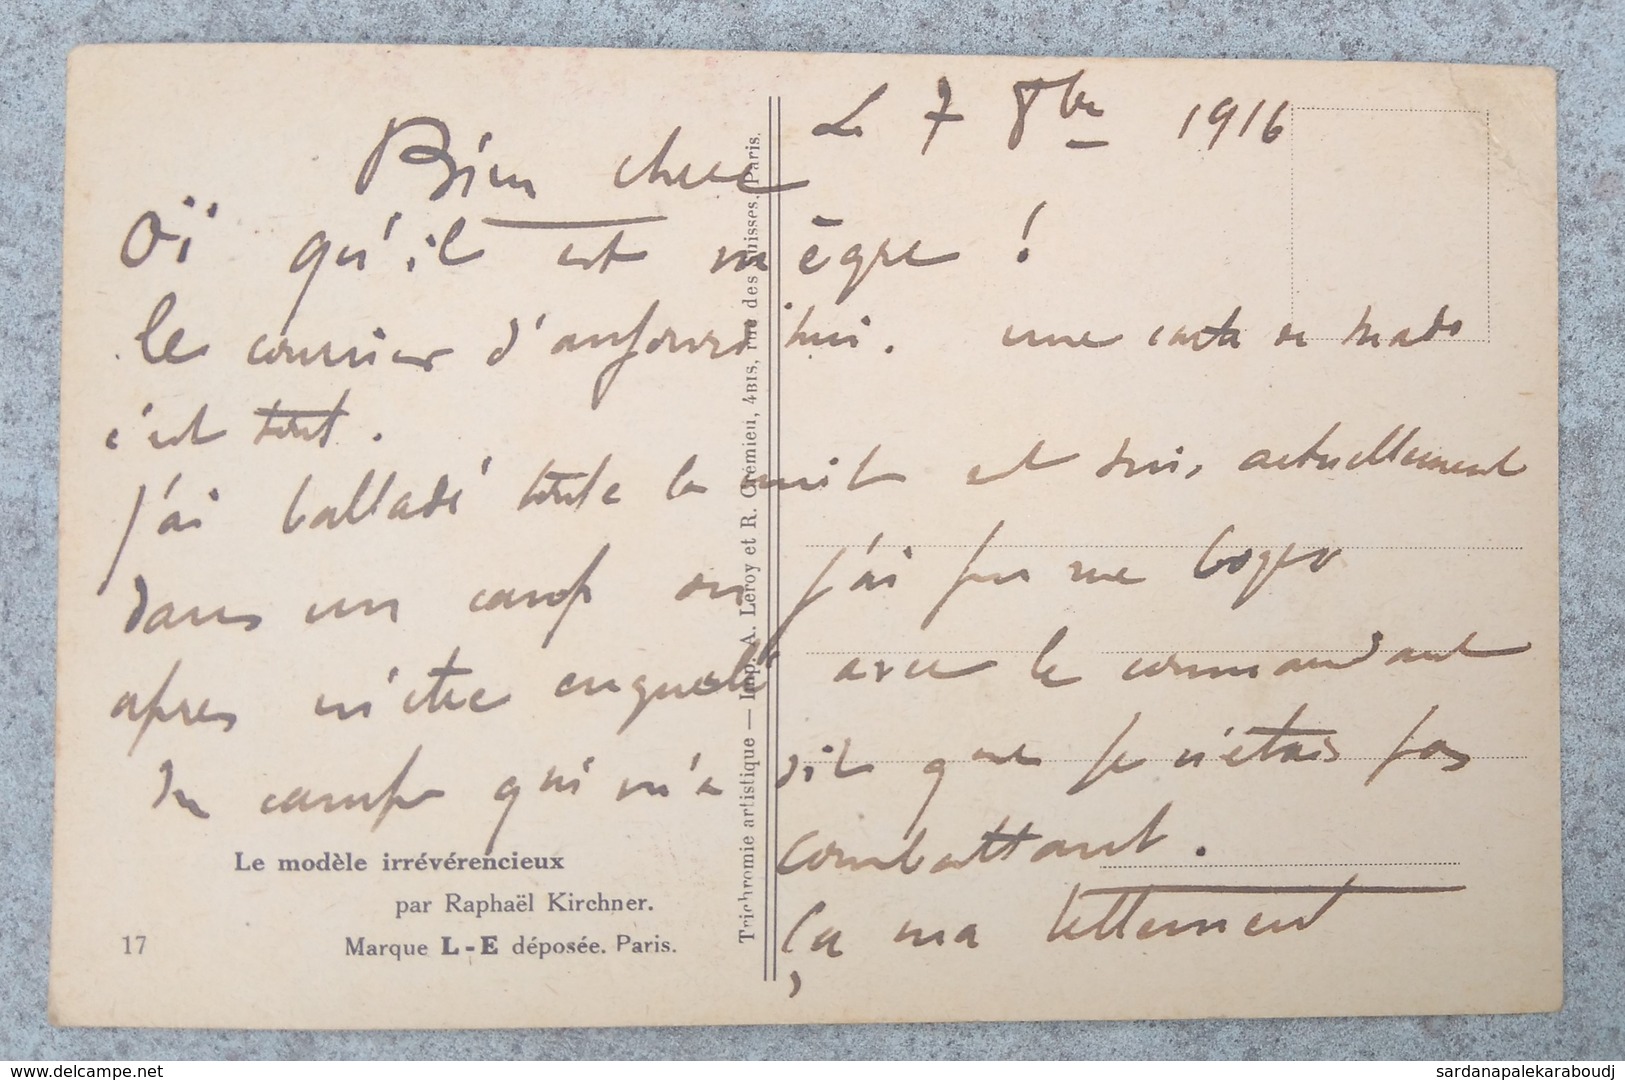 Le 7 8bre 1916
Bien chere
Oï qu'il est mēgre !
le courrier d'aujourd'hui. une carte de Mado
c'est tout.
J'ai balladé toute la nuit et suis actuellement
dans un camp ou j'ai pu me loger
apres m'etre engueulé avec le commandant
du camp qui m'a dit que je n'etais pas
combattant.
Ça ma tellement
Le modèle irrévérencieux
par Raphaël Kirchner.
17 Marque L-E déposée. Paris.
Trichromie artistique — Imp. A. Leroy et R. Crémieu, 4BIS, rue des Suisses, Paris.
delcampe.net
sardanapalekaraboudj